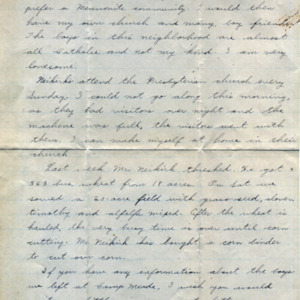 prefer a Mennonite community. I would then
have my own church and many boy friends.
The boys in this neighborhood are almost
all Catholic and not my kind. I am very
lonesome.
Neikirks attend the Presbyterian church every
Sunday. I could not go along this morning,
as they had visitors over night and the
machine was full, the visitors went with
them. I can make myself at home in their
church
Last week Mr. Neikirk threshed. He got
363 bu. wheat from 18 acres. On Sat. we
sowed a 20 acre field with grass-seed, clover
timothy and alfalfa mixed. After the wheat is
hauled, the very busy time is over until corn
cutting. Mr. Neikirk has bought a corn binder
to cut our corn.
If you have any information about the boys
we left at Camp Meade, I wish you would